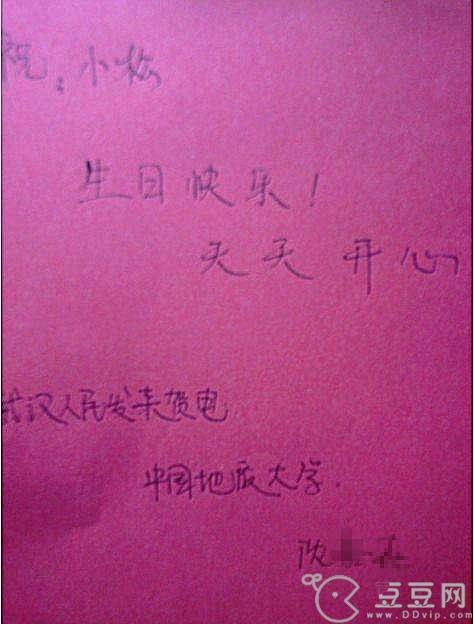 祝：小松
生日快乐！
天天开心
武汉人民发来贺电
中国地质大学.
豆豆网
www.DDvip.com